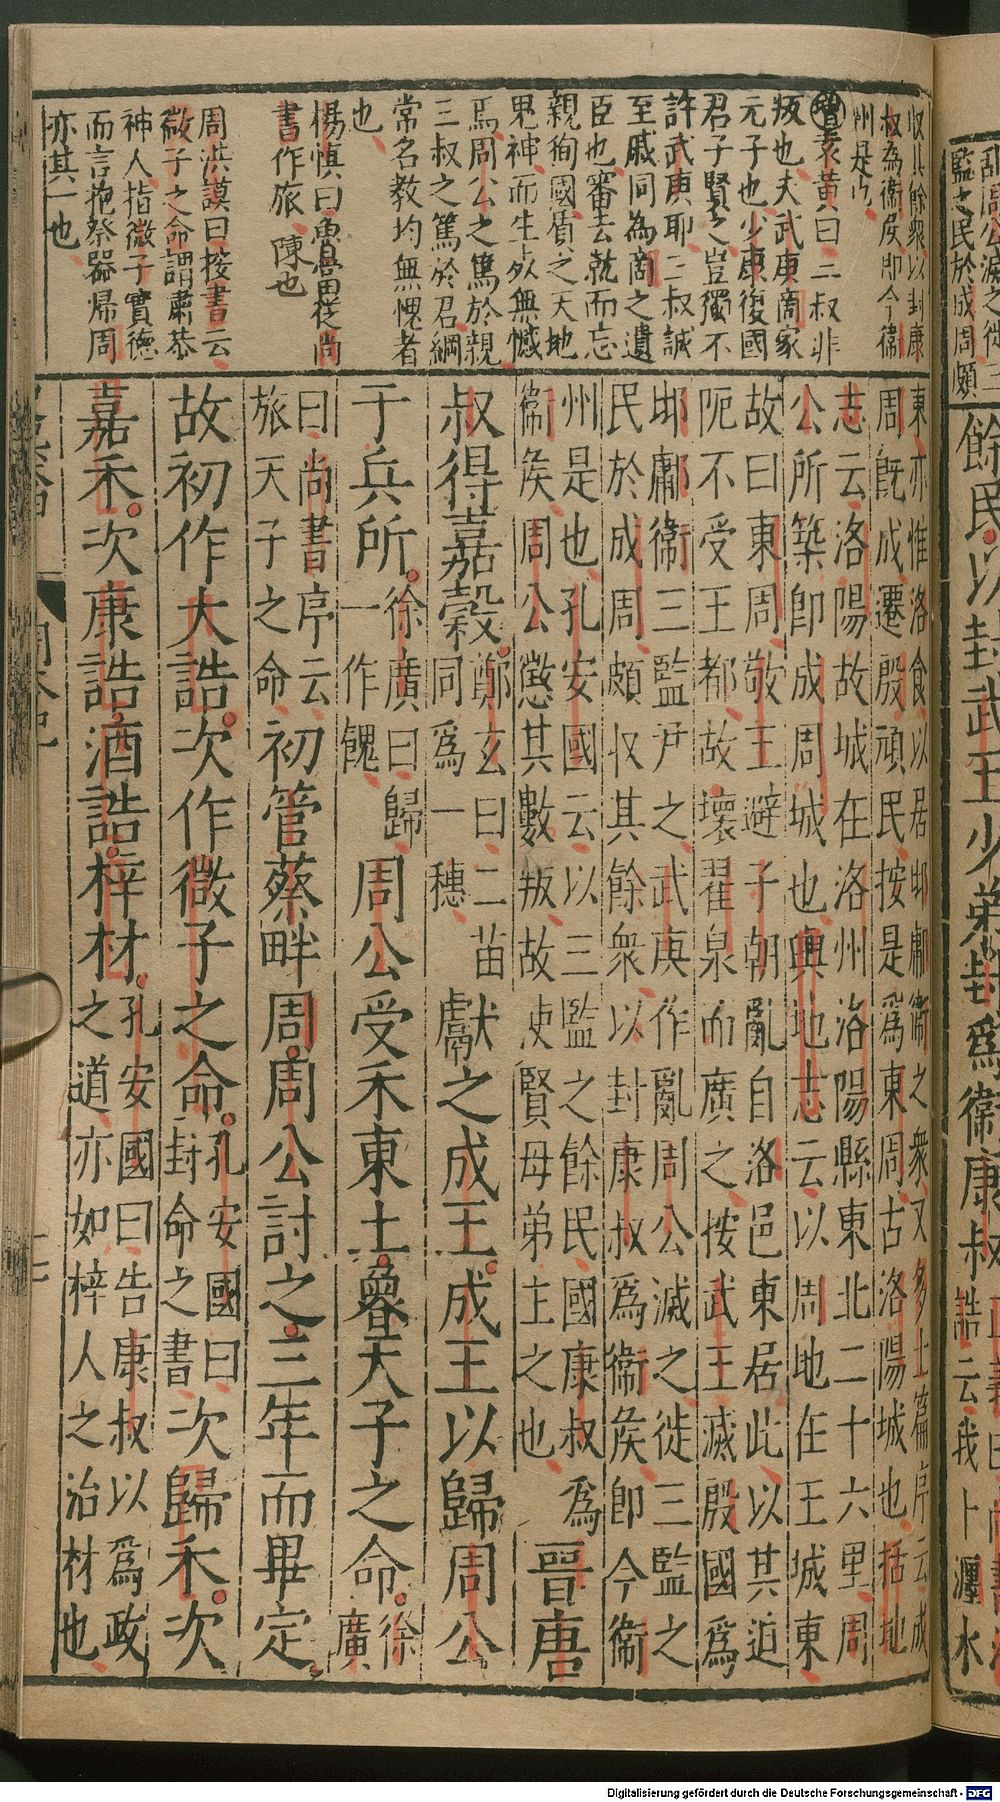 收其餘衆以封康
叔為衞侯即今衞
州是也
增袁黃曰二叔非
叛也夫武庚商家
元子也少康復國
君子賢之豈獨不
許武庚耶三叔誠
至戚同為商之遺
臣也審去就而忘
親徇國質之天地
鬼神而生死無憾
焉周公之篤於親
三叔之篤於君綱
常名教均無愧者
也
楊慎曰魯當從尚
書作旅陳也
周洪謨曰按書云
微子之命謂肅恭
神人指微子實德
而言抱祭器歸周
亦其一也
東亦惟洛食以居邶鄘衞之衆又多士篇序云成
周既成遷殷頑民按是爲東周古洛陽城也括地
志云洛陽故城在洛州洛陽縣東北二十六里周
公所築即成周城也輿地志云以周地在王城東
故曰東周敬王避子朝亂自洛邑東居此以其迫
阨不受王都故壞翟泉而廣之按武王滅殷國爲
邶鄘衞三監尹之武庚作亂周公滅之徙三監之
民於成周頗收其餘衆以封康叔爲衞侯即今衞
州是也孔安國云以三監之餘民國康叔爲
衞侯周公懲其數叛故使賢母弟主之也
晉唐
叔得嘉穀鄭玄曰二苗
同爲一穗獻之成王成王以歸周公
于兵所徐廣曰歸
一作餽周公受禾東土魯天子之命徐廣
曰尚書序云
旅天子之命初管蔡畔周周公討之三年而畢定
故初作大誥次作微子之命孔安國曰
封命之書次歸禾次
嘉禾次康誥酒誥梓材孔安國曰告康叔以爲政
之道亦如梓人之治材也
餘民以封武王少弟封爲衞康叔
誥云我卜瀍水
Digitalisierung gefördert durch die Deutsche Forschungsgemeinschaft - DFG